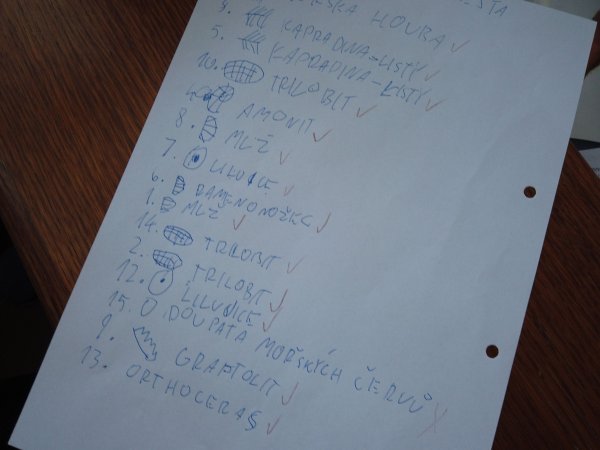 3. HOUBA
5. KAPRADINA-LISTY
KAPRADINA-LISTY
10. TRILOBIT
4. AMONIT
8. MLŽ
7. LILIJICE
6. RAMENONOŽEC
1. MLŽ
14. TRILOBIT
2. TRILOBIT
12. LILIJICE
15. DOUPATA MOŘSKÝCH ČERVŮ
9. GRAPTOLIT
13. ORTHOCERAS